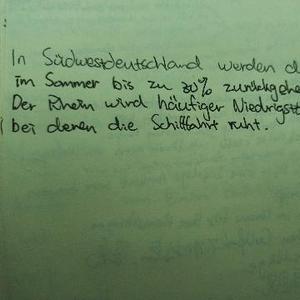 In Südwestdeutschland werden d
im Sommer bis zu 30% zurückgehe
Der Rhein wird häufiger Niedrigst
bei deren die Schifffahrt ruht.